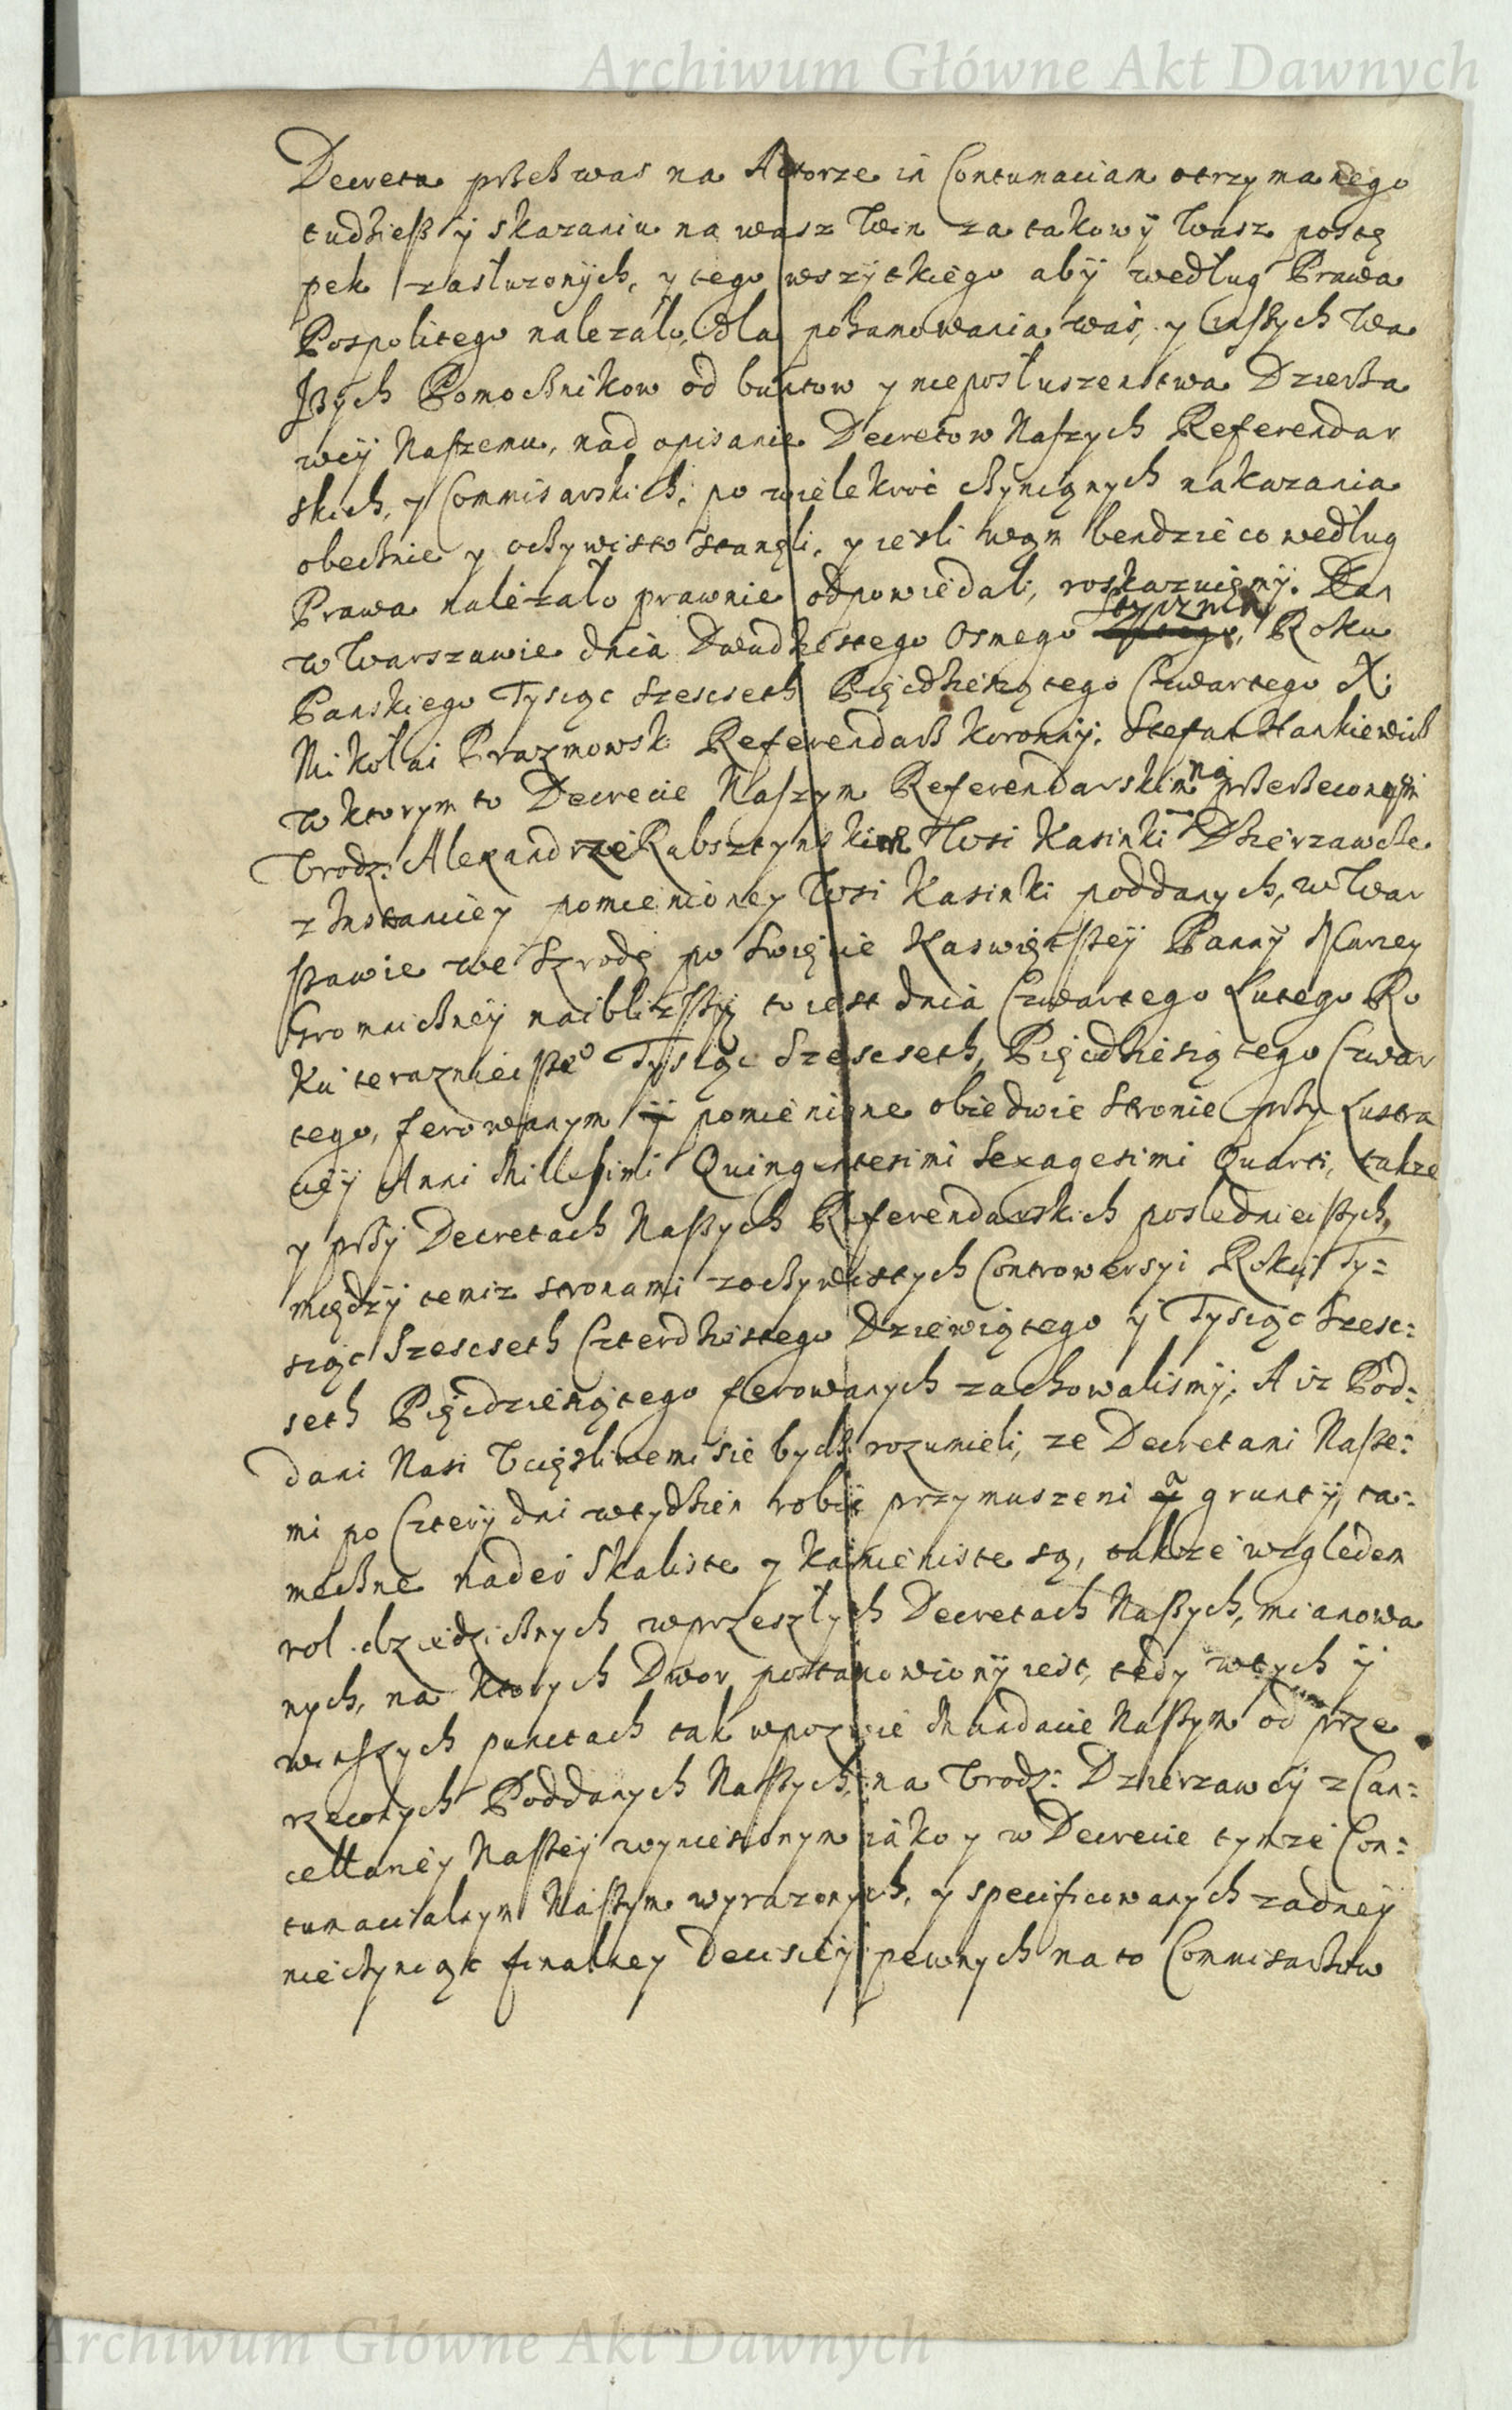 Archiwum Główne Akt Dawnych
Decretu przez was na Actorze in Contumaciam otrzymanego
tudziesz y skazaniu na wasz Win za takowy wasz postę
pek zasłuzonych, y tego wszytkiego aby według Prawa
Pospolitego nalezało, dla pohamowania was, y inszych wa
szych Pomocznikow od buntow y nieposłuszenstwa Dzierza
wcy Naszemu, nad opisanie Decretow Naszych Referendar
skich, y Commisarskich, po wielekroć czyniąnych nakazania
obecznie y oczywisto stanęli, y iesli wam bendzie co według
Prawa nalezało prawnie odpowiedali, roskazuięmy. Dan
w Warszawie dnia Dwudziestego Osmego Stycznia, Roku
Panskiego Tysiąc Szescseth Pięcdziesiątego Czwartego X.
Mikołai Prazmowski Referendarz Koronny. Stefan Hankiewicz
w ktorym to Decrecie Naszym Referendarskim na przerzeconym
Urodz: Alexandrze Rabsztynskim Wsi Kasinki Dzierzawcze
z Instanciey pomienioney Wsi Kasinki poddanych, w War
szawie we Szrodę po Swięcie Naswiętszey Panny Mariey
Gromniczney naiblizszy to iest dnia Czwartego Lutego Ro
ku teraznieiszeo Tysiąc Szescseth, Pięcdziesiątego Czwar
tego, ferowanym pomienione obiedwie Stronie przy Lustra
ciey Anni Millesimi Quingentesimi Sexagesimi Quarti, takze
y przy Decretach Naszych Referendarskich poslednieiszych,
między temiz stronami z oczywistych Controwersyi Roku Ty=
siąc Szescseth Czterdziestego Dziewiątego y Tysiąc Szesc=
seth Pięcdziesiątego ferowanych zachowalismy; A iz Pod=
dani Nasi Uciązliwemi sie bydz rozumieli, ze Decretami Nasze=
mi po Cztery dni w tydzien robic przymuszeni a grunty ta=
meczne nader Skaliste y Kamieniste są, takze względem
rol dziedzicznych w przeszłych Decretach Naszych, mianowa
nych, na ktorych Dwor postanowiony iest, tedy w tych y
w inszych punctach tak w pozwie Mandacie Naszym od prze
rzeconych Poddanych Naszych, na Urodz: Dzierzawcy z Can=
cellariey Naszey wyniesionym iako y w Decrecie tymze Con=
tumacialnym Naszym wyrazonych, y specificowanych zadney
nieczyniąc finalney Decisiey pewnych na to Commisarzow
Archiwum Główne Akt Dawnych